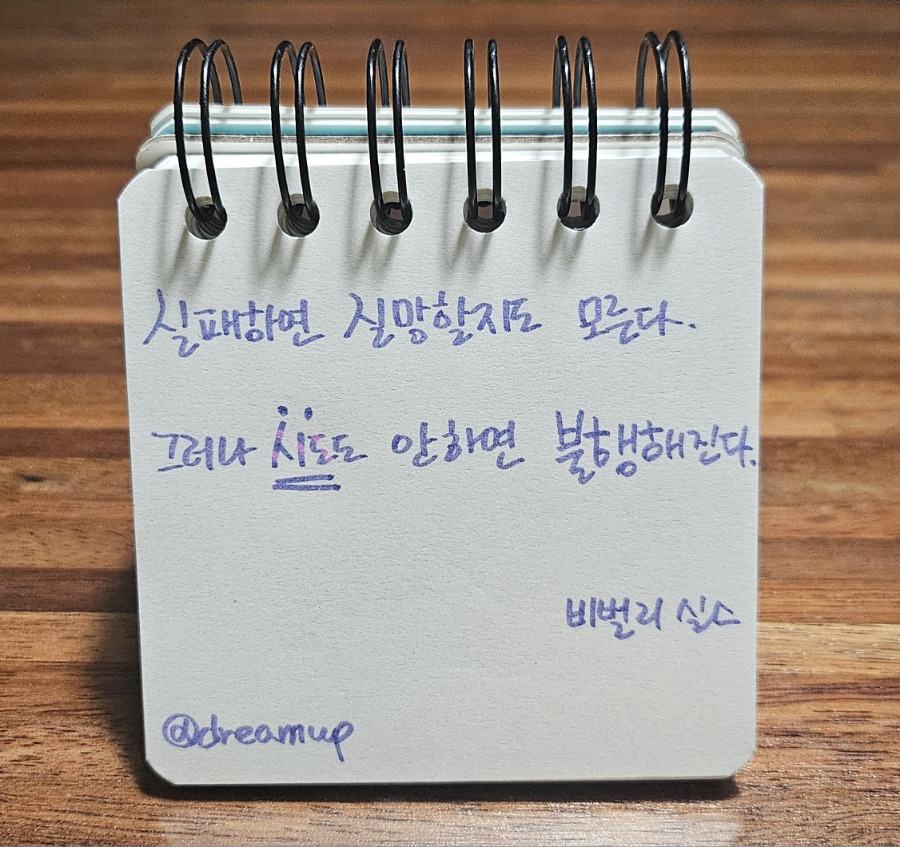 실패하면 실망할지도 모른다.
그러나 시도도 안하면 불행해진다.
비벌리 실스
@dreamup